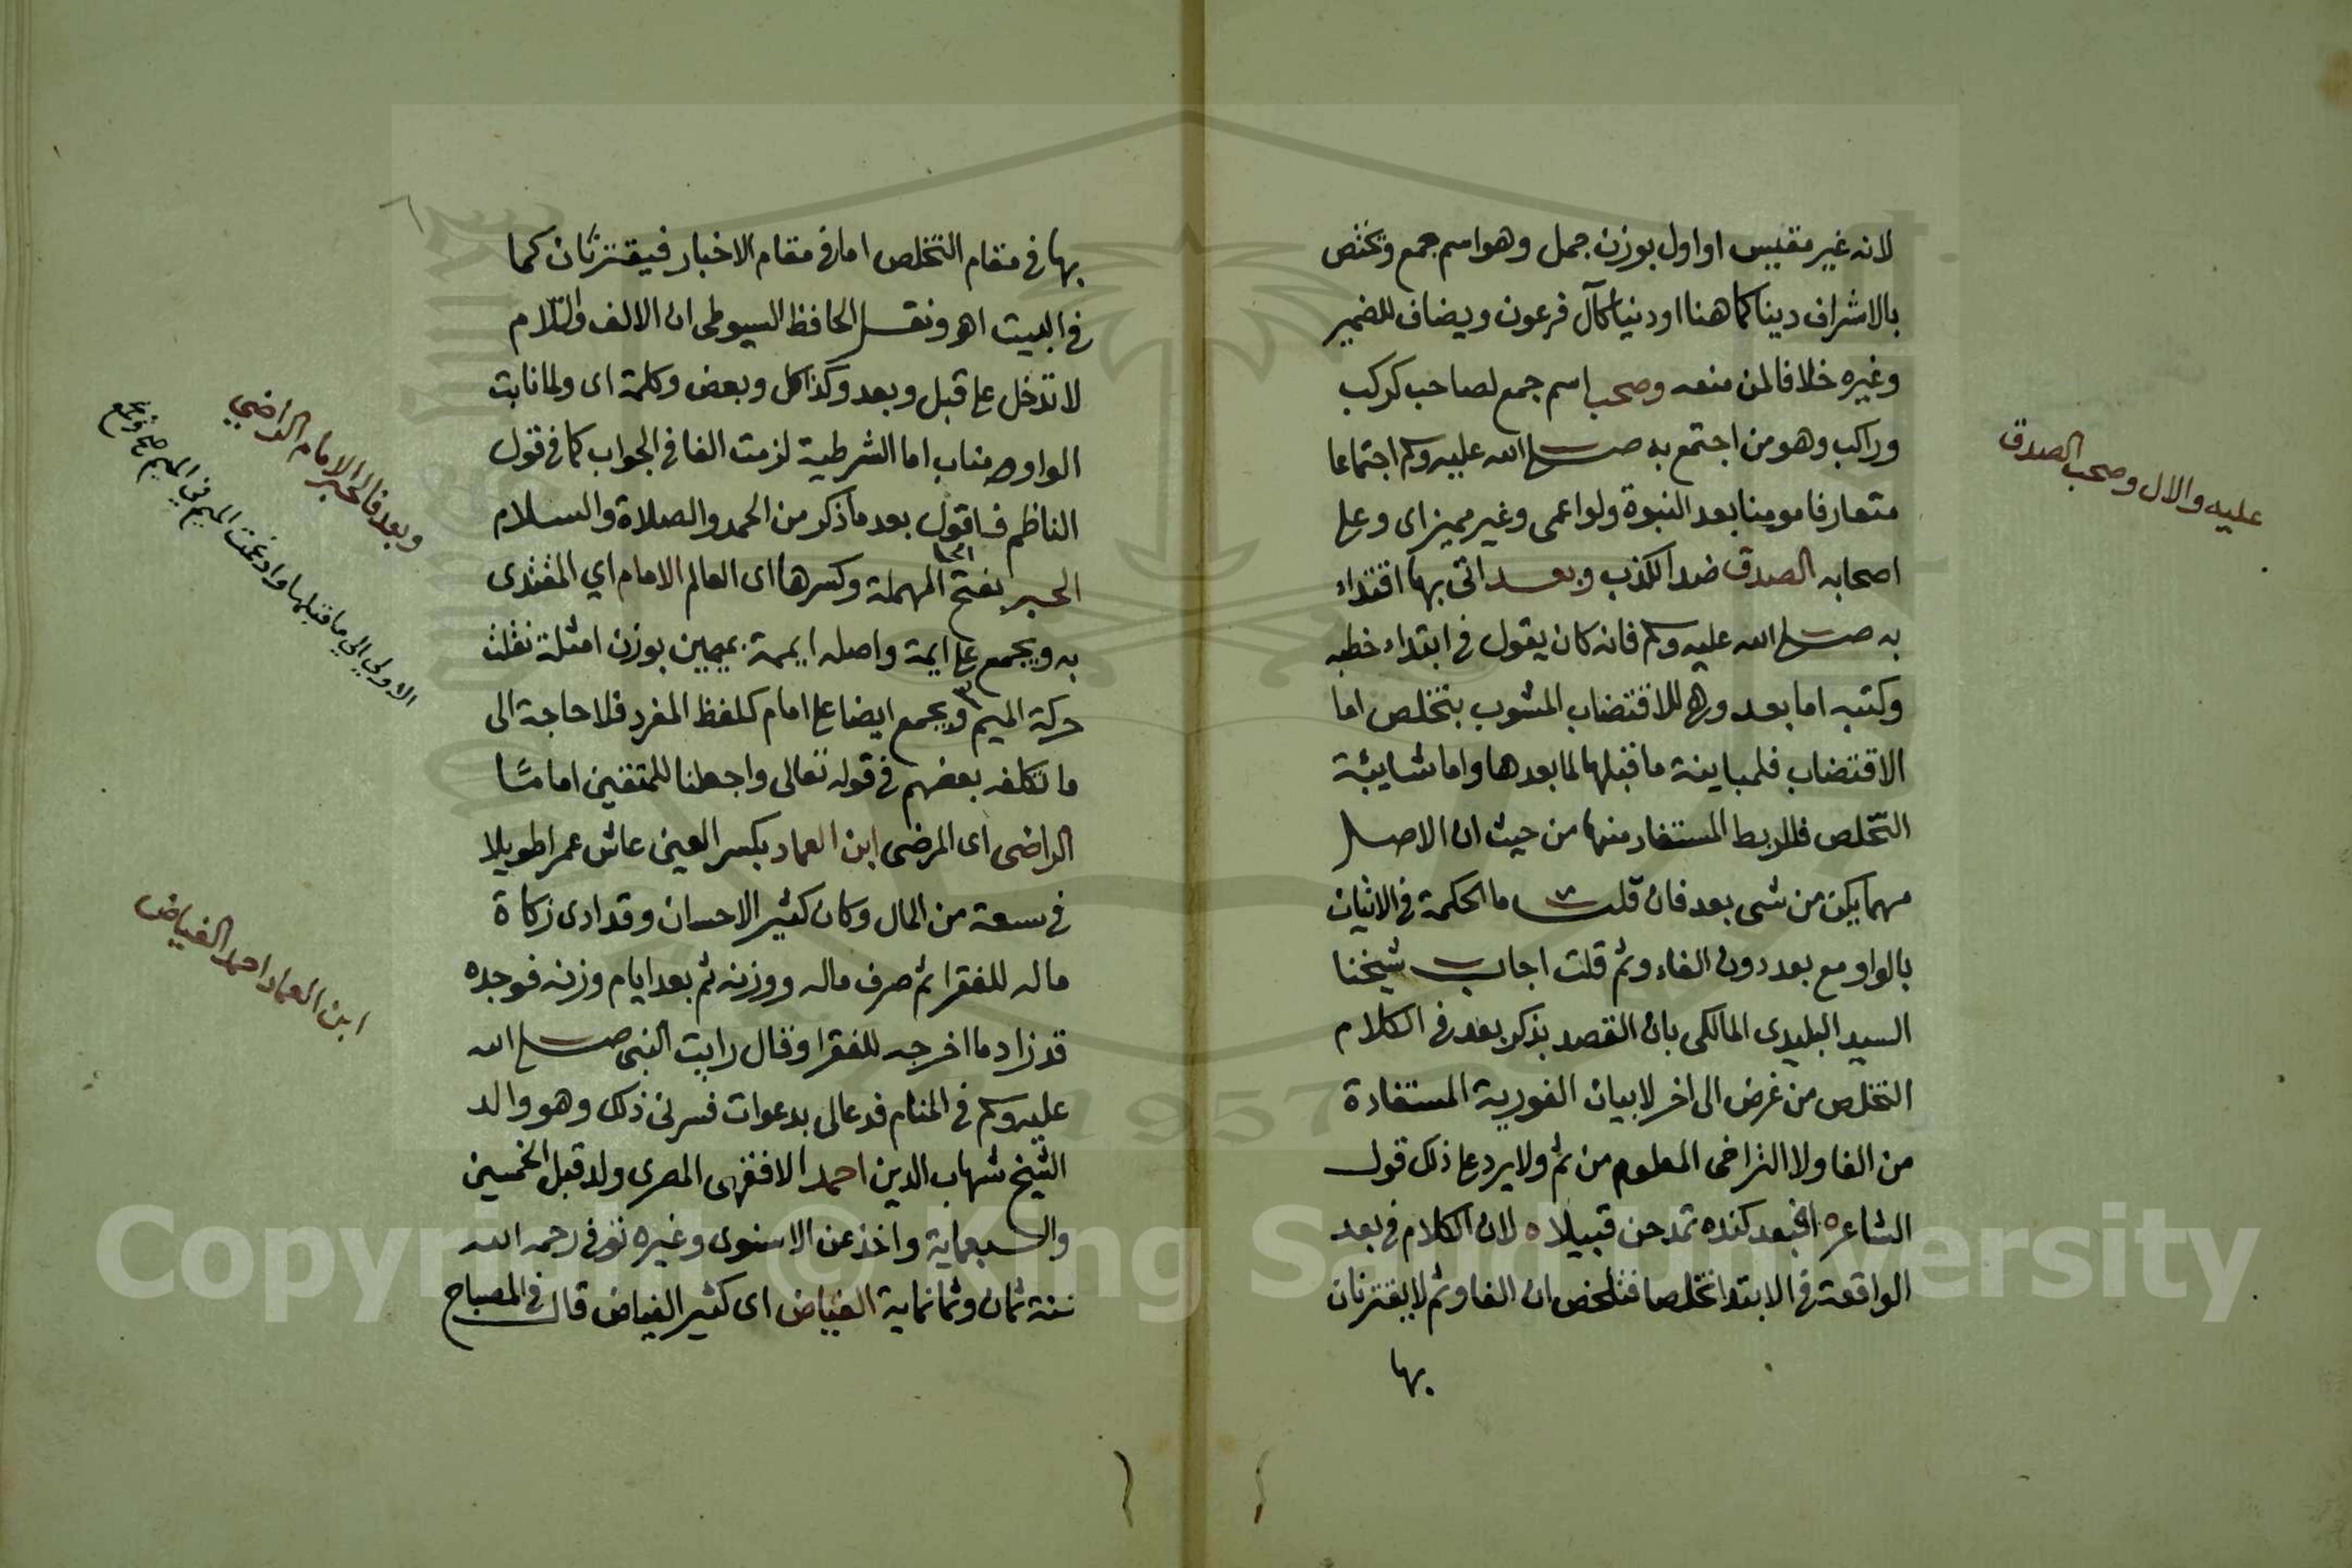 لانه غير مقيس او اول بوزن جمل وهو اسم جمع وتختص
بالاشراف دينا كما هنا او دنيا كآل فرعون ويضاف للضمير
وغيره خلافا لمن منعه وصحب اسم جمع لصاحب كركب
وراكب وهو من اجتمع به صلى الله عليه وسلم اجتماعا
متعارفا مومنا بعد النبوة ولو اعمى وغير مميز اى وعلى
اصحابه الصدق ضد الكذب وبعد اتى بها اقتداء
به صلى الله عليه وسلم فانه كان يقول فى ابتداء خطبه
وكتبه اما بعد وهى للاقتضاب المشوب بتخلص اما
الاقتضاب فلمباينة ما قبلها لما بعدها واما شايبة
التخلص فللربط المستفاد منها من حيث ان الاصل
مهما يكن من شى بعد فان قلت ما الحكمة فى الاتيان
بالواو مع بعد دون الفاء وثم قلت اجاب شيخنا
السيد البليدى المالكى بان القصد بذكر بعد فى الكلام
التخلص من غرض الى اخر لا بيان الفورية المستفادة
من الفا ولا التراخى المعلوم من ثم ولا يرد على ذلك قول
الشاعر ه افبعد كنده تمدحن قبيلا ه لان الكلام فى بعد
الواقعة فى الابتدا تخلصا فتلخص ان الفا وثم لا يقترنان
بها
عليه والال وصحب الصدق
بها فى مقام التخلص اما فى مقام الاخبار فيقترنان كما
فى البيت اهـ ونقل الحافظ السيوطى ان الالف واللام
لا تدخل على قبل وبعد وكذا كل وبعض وكلمة اى ولما نابت
الواو مناب اما الشرطية لزمت الفا فى الجواب كما فى قول
الناظم فاقول بعد ما ذكر من الحمد والصلاة والسلام
الحبر بفتح الحا المهملة وكسرها اى العالم الامام اي المقتدى
به ويجمع على ايمة واصله ايممة بميمين بوزن امثلة نقلت
حركة الميم ويجمع ايضا على امام كلفظ المفرد فلا حاجة الى
ما تكلفه بعضهم فى قوله تعالى واجعلنا للمتقين اماما
الراضى اى المرضى ابن العماد بكسر العين عاش عمرا طويلا
فى سعة من المال وكان كثير الاحسان وقد ادى زكاة
ماله للفقرا ثم صرف ماله ووزنه ثم بعد ايام وزنه فوجده
قد زاد ما اخرجه للفقرا وقال رايت النبى صلى الله
عليه وسلم فى المنام فدعا لى بدعوات فسرنى ذلك وهو والد
الشيخ شهاب الدين احمد الاقفهى المصرى ولد قبل الخمسين
والسبعماية واخذ عن الاسنوى وغيره توفى رحمه الله
سنة ثمان وثمانماية الفياض اى كثير الفياض قال فى المصباح
وبعد فالحبر الامام الراضي
الاولي الي ما قبلها وادغمت الميم في الميم صح ويجمع
ابن العماد احمد الفياض
Copyright © King Saud University
1957